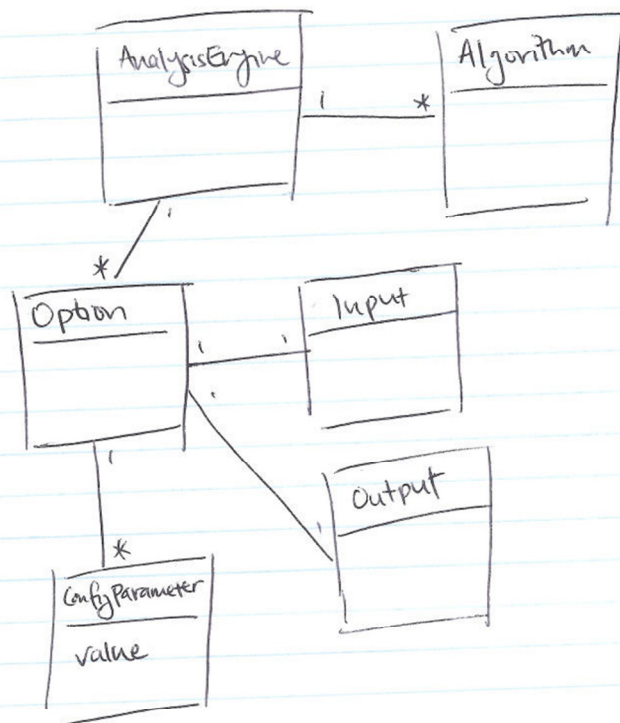 AnalysisEngine
Algorithm
1 *
1
*
Option
Input
1 1
1
Output
1
1
*
ConfigParameter
value